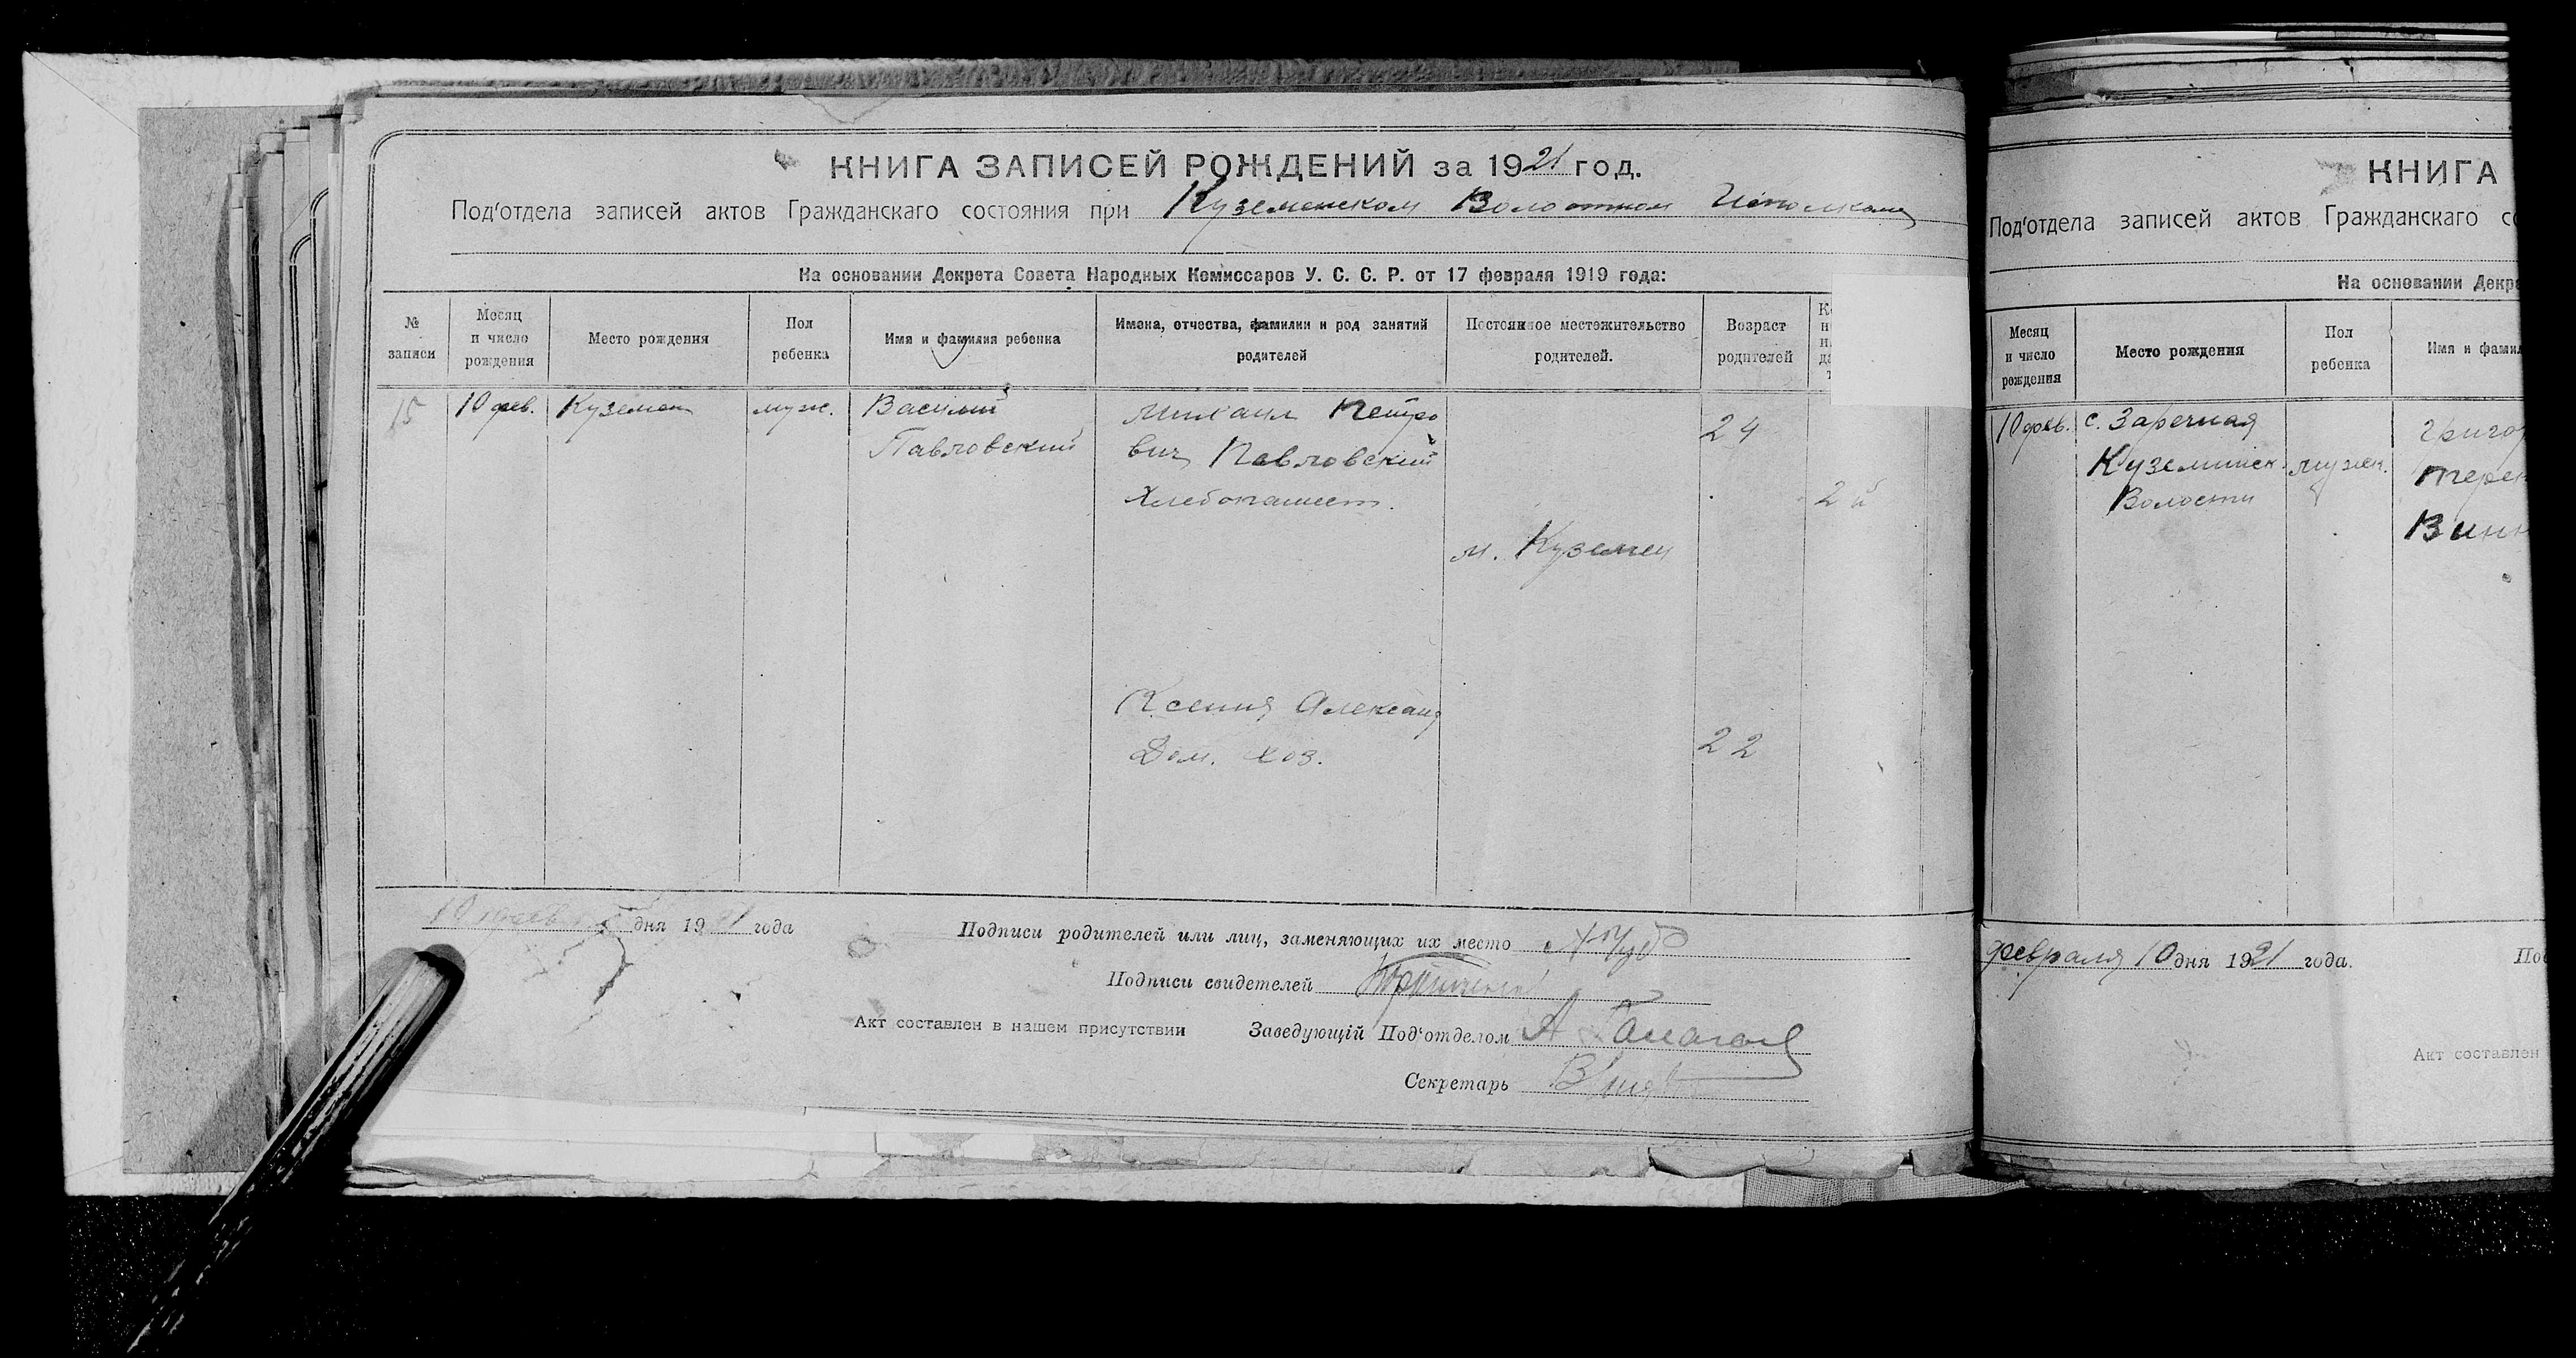 КНИГА ЗАПИСЕЙ РОЖДЕНИЙ за 1921 год.
Под‘отдела записей актов Гражданскаго состояния при Куземенском Волостном Исполкоме
На основании Декрета Совета Народных Комиссаров У. С. С. Р. от 17 февраля 1919 года:
№ записи
Месяц и число рождения
Место рождения
Пол ребенка
Имя и фамилия ребенка
Имена, отчества, фамилии и род занятий родителей
Постоянное местожительство родителей.
Возраст родителей
15
10 фев.
Куземен
муж.
Василий
Павловский
Михаил Петро
вич Павловский
Хлебопашест.
24
2й
м. Куземен
Ксения Александ
Дом. хоз.
22
10 дня 1921 года
Подписи родителей или лиц, заменяющих их место
Подписи свидетелей
Акт составлен в нашем присутствии
Заведующій Под‘отделом А
Секретарь
КНИГА
Под‘отдела записей актов Гражданскаго со
На основании Декре
Месяц и число рождения
Место рождения
Пол ребенка
Имя и фамил
10 фев.
с. Заречная
Куземинск.
Волости
мужск.
Григор
Терен
Винн
февраля 10 дня 1921 года.
Под
Акт составлен